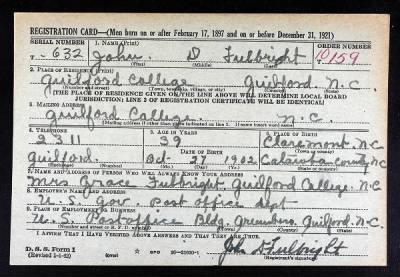 REGISTRATION CARD—(Men born on or after February 17, 1897 and on or before December 31, 1921)
SERIAL NUMBER 1. NAME (Print) ORDER NUMBER
T- 632 John. D Fulbright 10159
(First) (Middle) (Last)
2. PLACE OF RESIDENCE (Print)
Guilford College Guilford. N.C.
(Number and street) (Town, township, village, or city) (County) (State)
[THE PLACE OF RESIDENCE GIVEN ON THE LINE ABOVE WILL DETERMINE LOCAL BOARD
JURISDICTION; LINE 2 OF REGISTRATION CERTIFICATE WILL BE IDENTICAL]
3. MAILING ADDRESS
Guilford College. N.C.
[Mailing address if other than place indicated on line 2. If same insert word same]
4. TELEPHONE 5. AGE IN YEARS 6. PLACE OF BIRTH
2311 39 Claremont N.C
DATE OF BIRTH
Guilford. Oct- 27 1902 Catawba county N.C
7. NAME AND ADDRESS OF PERSON WHO WILL ALWAYS KNOW YOUR ADDRESS
Mrs Grace Fulbright, Guilford College. N.C
8. EMPLOYER'S NAME AND ADDRESS
U.S. Gov. Post office Dept
9. PLACE OF EMPLOYMENT OR BUSINESS
U.S. Postoffice Bldg. Greensboro Guilford. N.C.
(Number and street or R. F. D. number) (Town) (County) (State)
I AFFIRM THAT I HAVE VERIFIED ABOVE ANSWERS AND THAT THEY ARE TRUE.
D. S. S. Form 1
(Revised 1-1-42) GPO 16—21630-1 John D Fulbright
(Registrant's signature)